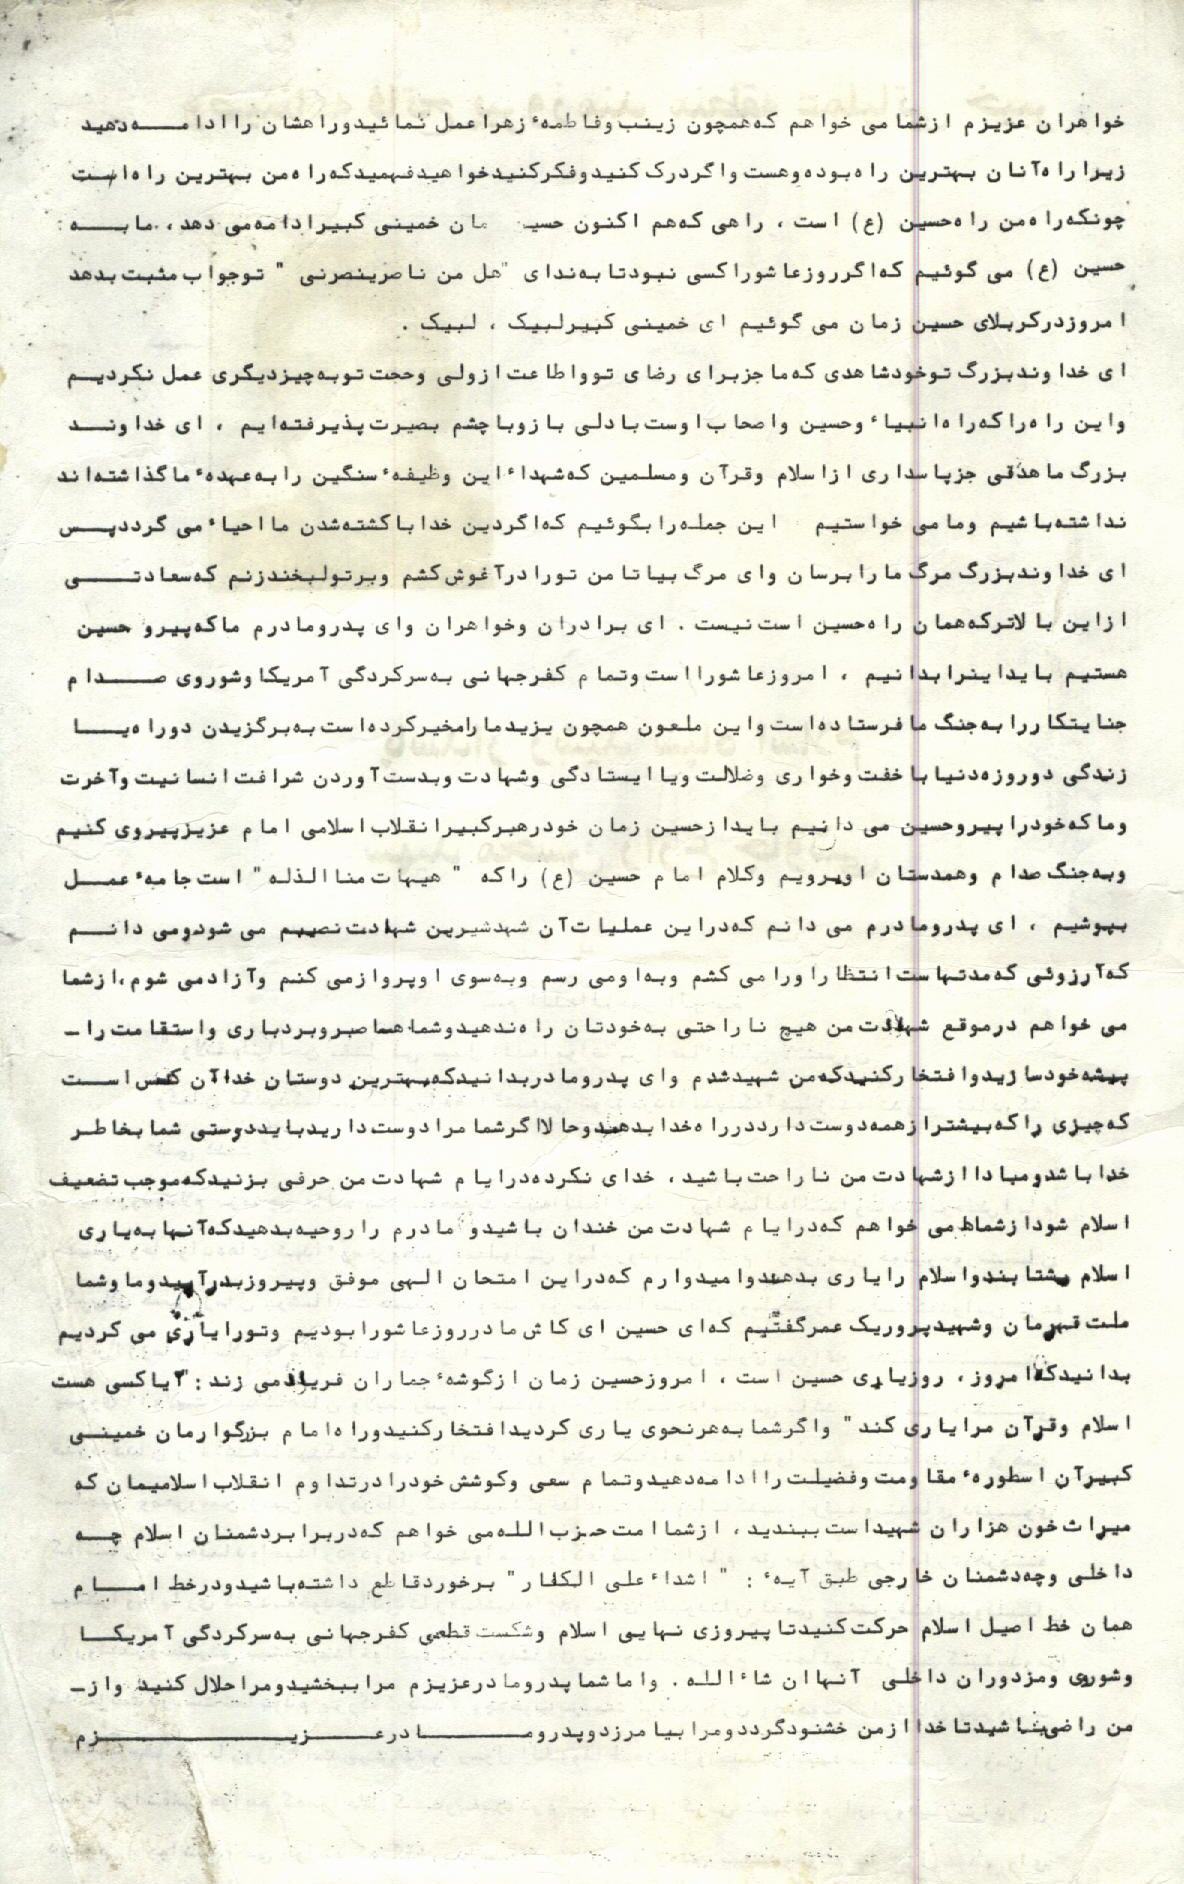 خواهران عزیزم ازشما می خواهم که همچون زینب وفاطمهٔ زهرا عمل نمائید وراهشان را ادامه دهید
زیرا راه آنان بهترین راه بوده وهست واگردرک کنید وفکرکنید خواهید فهمید که راه من بهترین راه است
چونکه راه من راه حسین (ع) است ، راهی که هم اکنون حسین مان خمینی کبیر ادامه می دهد ، ما به
حسین (ع) می گوئیم که اگر روز عاشورا کسی نبود تا به ندای "هل من ناصر ینصرنی " توجواب مثبت بدهد
امروز درکربلای حسین زمان می گوئیم ای خمینی کبیر لبیک ، لبیک .
ای خداوند بزرگ توخود شاهدی که ما جز برای رضای تو واطاعت ازولی وحجت تو به چیز دیگری عمل نکردیم
واین راه را که راه انبیاء وحسین واصحاب اوست با دلی باز وبا چشم بصیرت پذیرفته ایم ، ای خداوند
بزرگ ما هدفی جز پاسداری ازاسلام وقرآن ومسلمین که شهداء این وظیفهٔ سنگین را به عهدهٔ ما گذاشته اند
نداشته باشیم وما می خواستیم این جمله را بگوئیم که اگر دین خدا با کشته شدن ما احیاء می گردد پس
ای خداوند بزرگ مرگ ما را برسان وای مرگ بیا تا من تورا درآغوش کشم وبر تولبخند زنم که سعادتی
ازاین بالاتر که همان راه حسین است نیست . ای برادران وخواهران وای پدرومادرم ما که پیرو حسین
هستیم باید اینرا بدانیم ، امروز عاشورا است وتمام کفرجهانی به سرکردگی آمریکا وشوروی صدام
جنایتکار را به جنگ ما فرستاده است واین ملعون همچون یزید ما را مخیر کرده است به برگزیدن دو راه یا
زندگی دو روزه دنیا با خفت وخواری وضلالت ویا ایستادگی وشهادت وبدست آوردن شرافت انسانیت وآخرت
وما که خود را پیروحسین می دانیم باید از حسین زمان خود رهبرکبیر انقلاب اسلامی امام عزیز پیروی کنیم
وبه جنگ صدام وهمدستان او برویم وکلام امام حسین (ع) را که " هیهات منا الذله " است جامهٔ عمل
بپوشیم ، ای پدرومادرم می دانم که دراین عملیات آن شهد شیرین شهادت نصیبم می شود ومی دانم
که آرزوئی که مدتهاست انتظار اورا می کشم وبه او می رسم وبه سوی او پرواز می کنم وآزاد می شوم ، ازشما
می خواهم درموقع شهادت من هیچ ناراحتی به خودتان راه ندهید وشما هما صبر وبردباری واستقامت را -
پیشه خود سازید وافتخار کنید که من شهید شدم وای پدرومادر بدانید که بهترین دوستان خدا آن کس است
که چیزی را که بیشتر از همه دوست دارد در راه خدا بدهد وحالا اگر شما مرا دوست دارید باید دوستی شما بخاطر
خدا باشد ومبادا ازشهادت من ناراحت باشید ، خدای نکرده درایام شهادت من حرفی بزنید که موجب تضعیف
اسلام شود ازشما می خواهم که درایام شهادت من خندان باشید و مادرم را روحیه بدهید که آنها به یاری
اسلام بشتابند واسلام را یاری بدهند وامیدوارم که دراین امتحان الهی موفق وپیروز بدرآیید وما وشما
ملت قهرمان وشهید پرور یک عمر گفتیم که ای حسین ای کاش ما درروز عاشورا بودیم وتورا یاری می کردیم
بدانید که امروز ، روز یاری حسین است ، امروز حسین زمان ازگوشهٔ جماران فریاد می زند : "آیا کسی هست
اسلام وقرآن مرا یاری کند " واگر شما به هر نحوی یاری کردید افتخار کنید وراه امام بزرگوارمان خمینی
کبیر آن اسطورهٔ مقاومت وفضیلت را ادامه دهید وتمام سعی وکوشش خود را درتداوم انقلاب اسلامیمان که
میراث خون هزاران شهید است ببندید ، ازشما امت حزب الله می خواهم که دربرابر دشمنان اسلام چه
داخلی وچه دشمنان خارجی طبق آیهٔ : " اشداء علی الکفار " برخورد قاطع داشته باشید ودرخط امام
همان خط اصیل اسلام حرکت کنید تا پیروزی نهایی اسلام وشکست قطعی کفرجهانی به سرکردگی آمریکا
وشوروی ومزدوران داخلی آنها ان شاء الله . واما شما پدرومادر عزیزم مرا ببخشید ومرا حلال کنید واز -
من راضی باشید تا خدا ازمن خشنود گردد ومرا بیامرزد وپدرومادر عزیزم